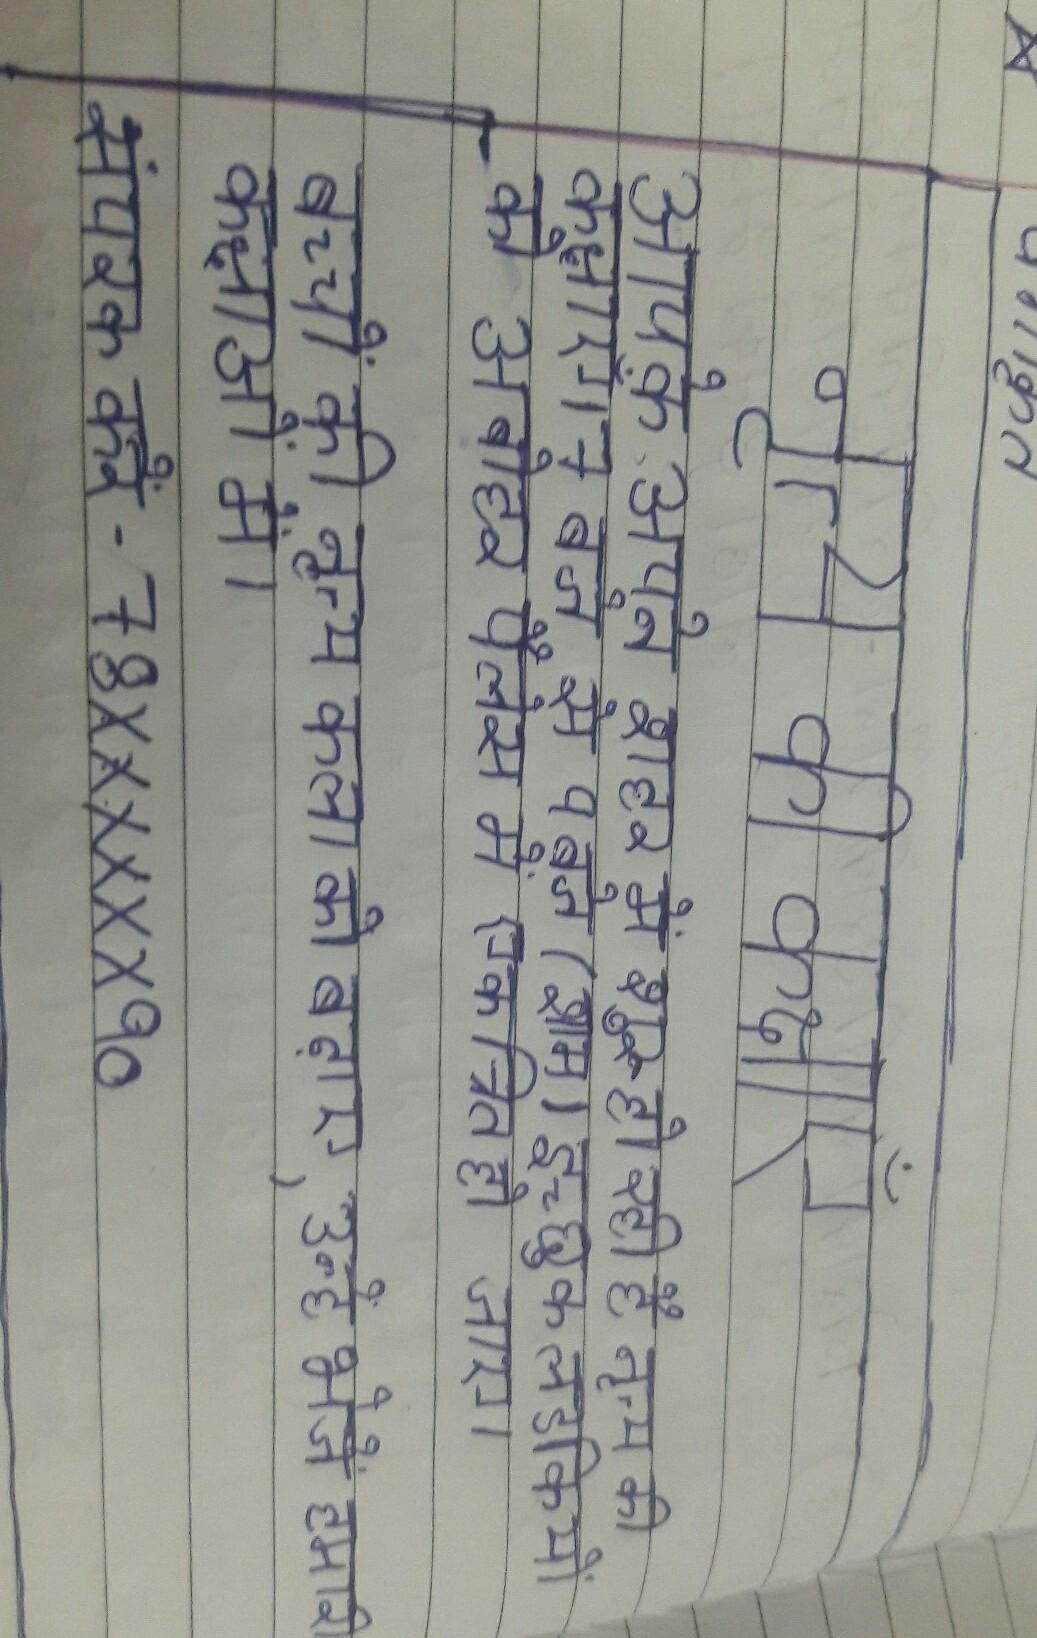 नृत्य की कक्षाएँ
आपके अपने शहर में शुरू हो रही है नृत्य की
कक्षाएँ। न बजे से ५ बजे (शाम। इच्छुक लडकियों
को अबोहर पैलेस में एकत्रित हो जाए।
बच्चों की नृत्य कला को बढ़ाए, उन्हें भेजें हमारी
कक्षाओं में।
संपरक करें - 78XXXXXX90